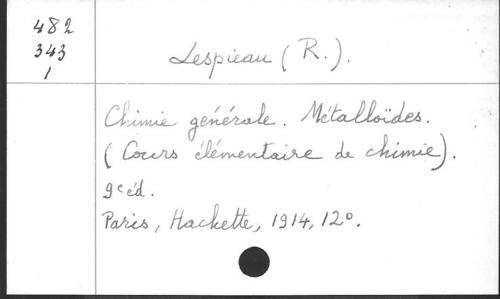 482
343
1
Lespieau (R.).
Chimie générale. Métalloïdes.
(Cours élémentaire de chimie).
9e éd.
Paris, Hachette, 1914, 12º.